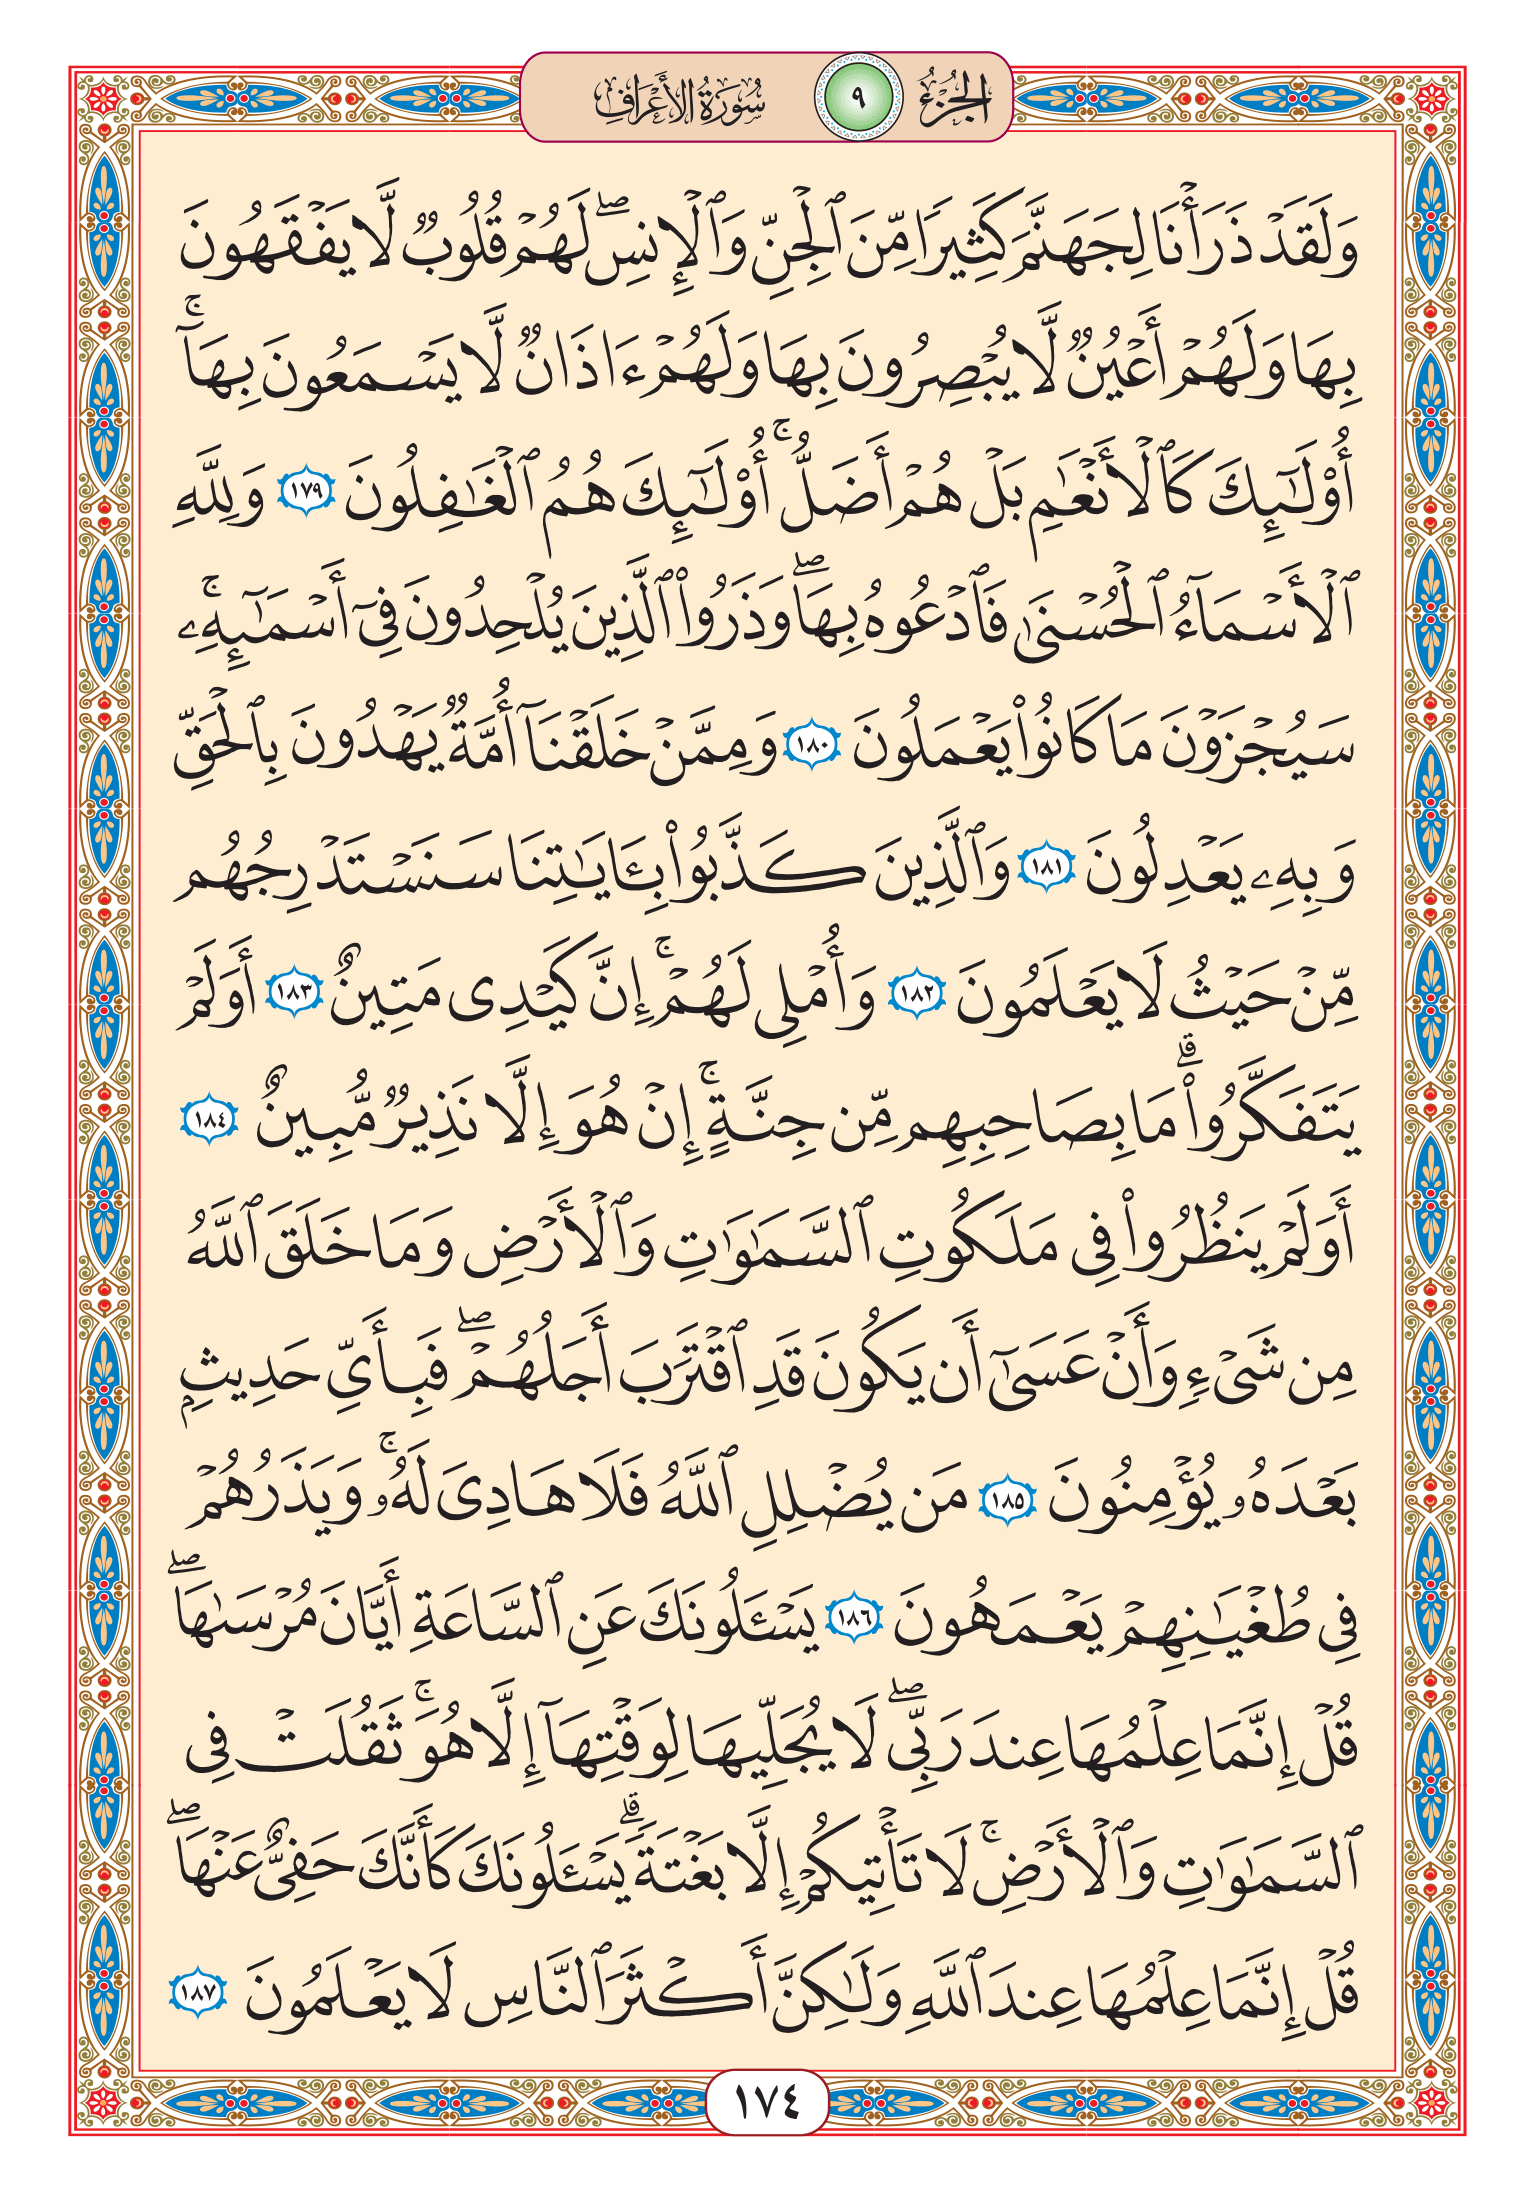 الجزء ٩ سورة الأعراف
وَلَقَدْ ذَرَأْنَا لِجَهَنَّمَ كَثِيرًا مِّنَ ٱلْجِنِّ وَٱلْإِنسِ ۖ لَهُمْ قُلُوبٌ لَّا يَفْقَهُونَ
بِهَا وَلَهُمْ أَعْيُنٌ لَّا يُبْصِرُونَ بِهَا وَلَهُمْ ءَاذَانٌ لَّا يَسْمَعُونَ بِهَآ ۚ
أُو۟لَـٰٓئِكَ كَٱلْأَنْعَـٰمِ بَلْ هُمْ أَضَلُّ ۚ أُو۟لَـٰٓئِكَ هُمُ ٱلْغَـٰفِلُونَ ١٧٩ وَلِلَّهِ
ٱلْأَسْمَآءُ ٱلْحُسْنَىٰ فَٱدْعُوهُ بِهَا ۖ وَذَرُوا۟ ٱلَّذِينَ يُلْحِدُونَ فِىٓ أَسْمَـٰٓئِهِۦ ۚ
سَيُجْزَوْنَ مَا كَانُوا۟ يَعْمَلُونَ ١٨٠ وَمِمَّنْ خَلَقْنَآ أُمَّةٌ يَهْدُونَ بِٱلْحَقِّ
وَبِهِۦ يَعْدِلُونَ ١٨١ وَٱلَّذِينَ كَذَّبُوا۟ بِـَٔايَـٰتِنَا سَنَسْتَدْرِجُهُم
مِّنْ حَيْثُ لَا يَعْلَمُونَ ١٨٢ وَأُمْلِى لَهُمْ ۚ إِنَّ كَيْدِى مَتِينٌ ١٨٣ أَوَلَمْ
يَتَفَكَّرُوا۟ ۗ مَا بِصَاحِبِهِم مِّن جِنَّةٍ ۚ إِنْ هُوَ إِلَّا نَذِيرٌ مُّبِينٌ ١٨٤
أَوَلَمْ يَنظُرُوا۟ فِى مَلَكُوتِ ٱلسَّمَـٰوَٰتِ وَٱلْأَرْضِ وَمَا خَلَقَ ٱللَّهُ
مِن شَىْءٍ وَأَنْ عَسَىٰٓ أَن يَكُونَ قَدِ ٱقْتَرَبَ أَجَلُهُمْ ۖ فَبِأَىِّ حَدِيثٍۭ
بَعْدَهُۥ يُؤْمِنُونَ ١٨٥ مَن يُضْلِلِ ٱللَّهُ فَلَا هَادِىَ لَهُۥ ۚ وَيَذَرُهُمْ
فِى طُغْيَـٰنِهِمْ يَعْمَهُونَ ١٨٦ يَسْـَٔلُونَكَ عَنِ ٱلسَّاعَةِ أَيَّانَ مُرْسَىٰهَا ۖ
قُلْ إِنَّمَا عِلْمُهَا عِندَ رَبِّى ۖ لَا يُجَلِّيهَا لِوَقْتِهَآ إِلَّا هُوَ ۚ ثَقُلَتْ فِى
ٱلسَّمَـٰوَٰتِ وَٱلْأَرْضِ ۚ لَا تَأْتِيكُمْ إِلَّا بَغْتَةً ۗ يَسْـَٔلُونَكَ كَأَنَّكَ حَفِىٌّ عَنْهَا ۖ
قُلْ إِنَّمَا عِلْمُهَا عِندَ ٱللَّهِ وَلَـٰكِنَّ أَكْثَرَ ٱلنَّاسِ لَا يَعْلَمُونَ ١٨٧
١٧٤